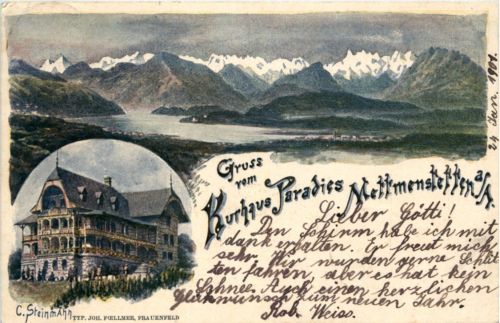 Gruss
vom
Kurhaus Paradies Mettmenstetten a/A.
24 Jan. 1901.
Lieber Götti!
Den Schirm habe ich mit
dank erhalten. Er freut mich
sehr. Wir wurden gerne Schlit
ten fahren, aber es hat kein
Schnee. Auch einen herzlichen
Glückwunsch zum neuen Jahr.
Rob. Weiss.
C. Steinmann
TYP. JOH. FŒLLMER, FRAUENFELD